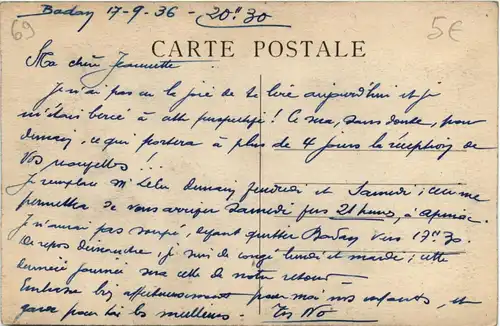 69
Badan 17-9-36 - 20h30
5€
CARTE POSTALE
Ma chère Jeannette
Je n'ai pas eu la joie de te lire aujourd'hui et je
m'étais bercé à cette perspective ! Ce sera, sans doute, pour
demain, ce qui portera à plus de 4 jours la réception de
vos nouvelles !
Je remplace Mr demain Vendredi et Samedi ; cela me
permettra de vous arriver Samedi vers 21 heures, à
Je n'aurai pas soupé, devant quitter Badan vers 17h30.
De repos dimanche, je suis de congé lundi et mardi ; cette
dernière journée sera celle de notre retour
Embrasse bien affectueusement pour moi nos enfants, et
garde pour toi les meilleurs.